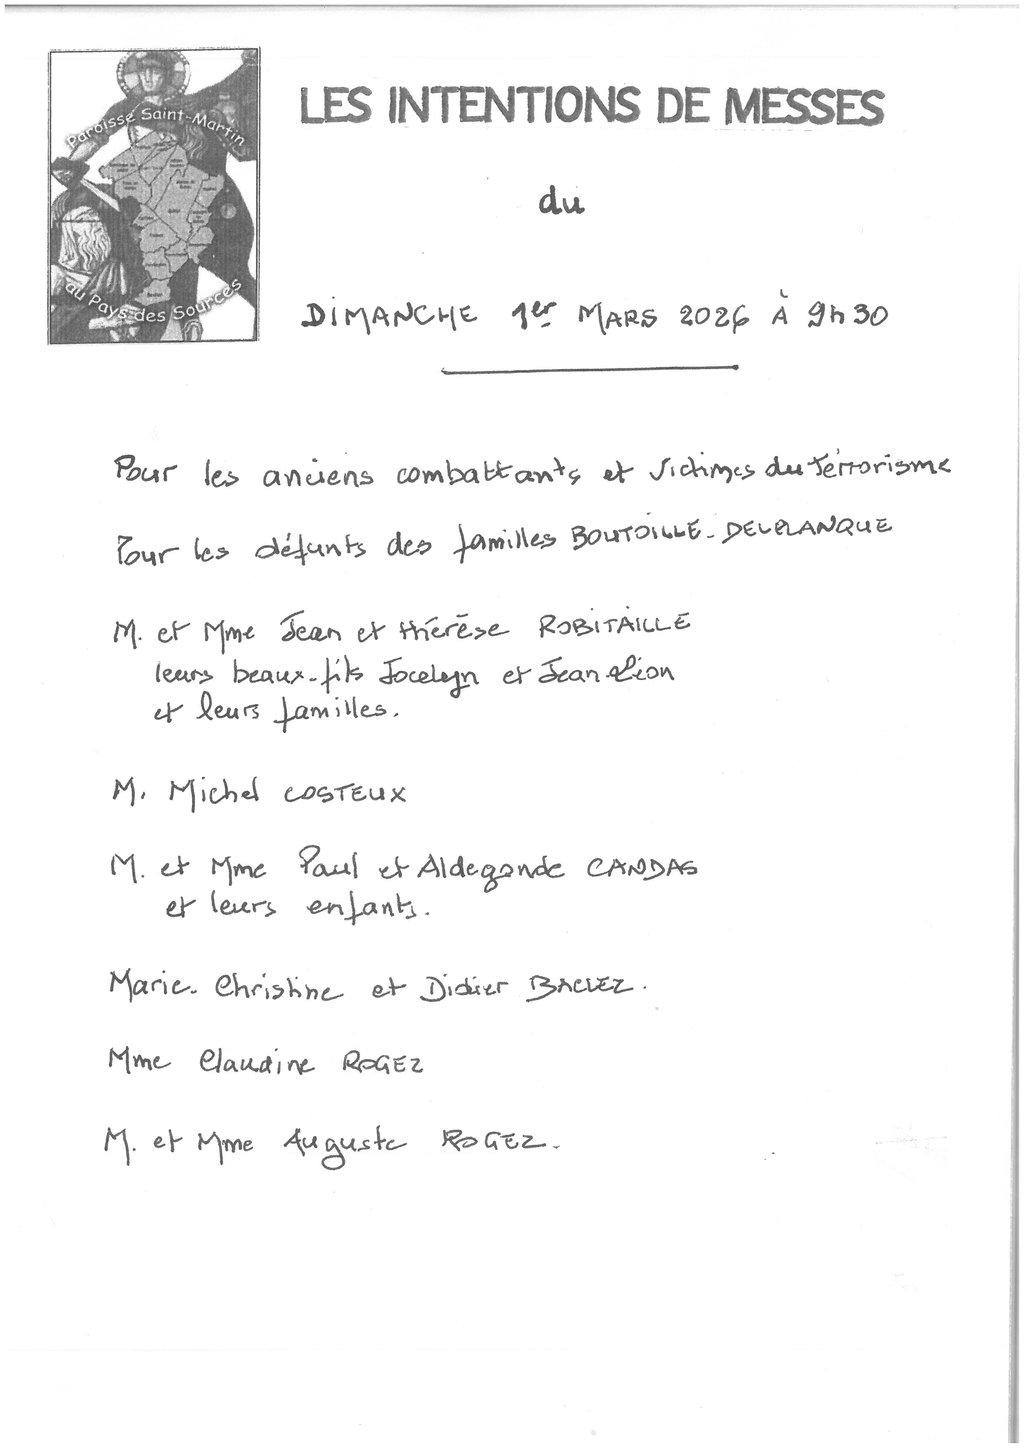 Paroisse Saint-Martin
au Pays des Sources
LES INTENTIONS DE MESSES
du
DIMANCHE 1er MARS 2026 À 9h30
Pour les anciens combattants et victimes du Térrorisme
Pour les défunts des familles BOUTOILLE-DELPLANQUE
M. et Mme Jean et thérèse ROBITAILLE
leurs beaux-fils Jocelyn et Jean-Léon
et leurs familles.
M. Michel COSTEUX
M. et Mme Paul et Aldegonde CANDAS
et leurs enfants.
Marie-Christine et Didier BACLEZ.
Mme Claudine ROGEZ
M. et Mme Auguste ROGEZ.